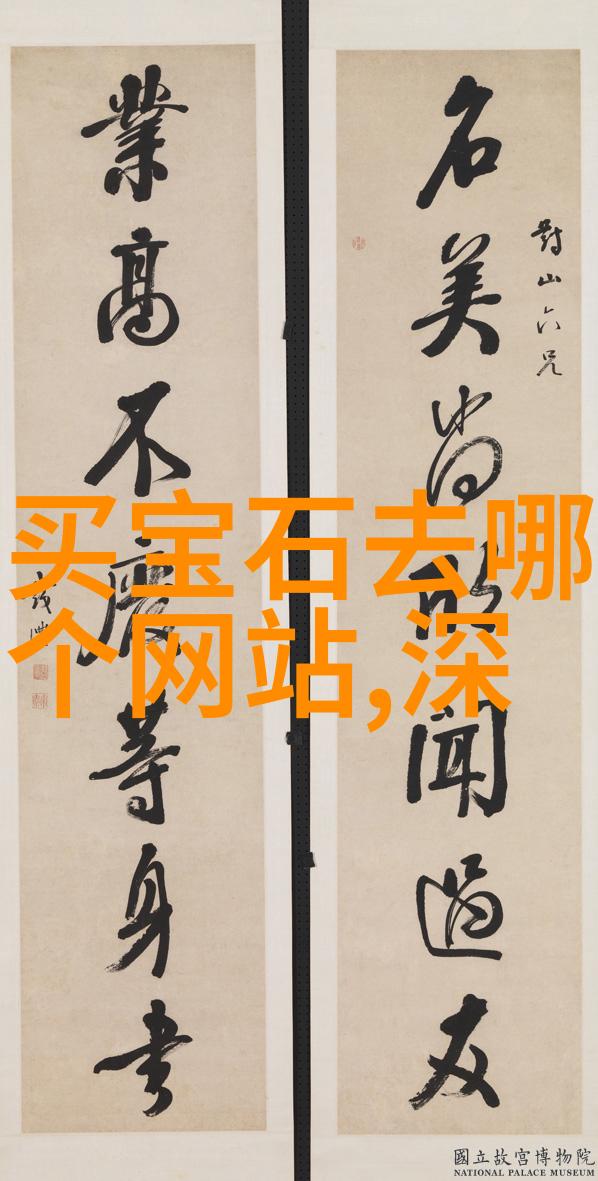 名美尚欣聞過友
對山六兄
業高不廢等身書
買宝石去哪
个网站,深
國立故宮博物院
NATIONAL PALACE MUSEUM